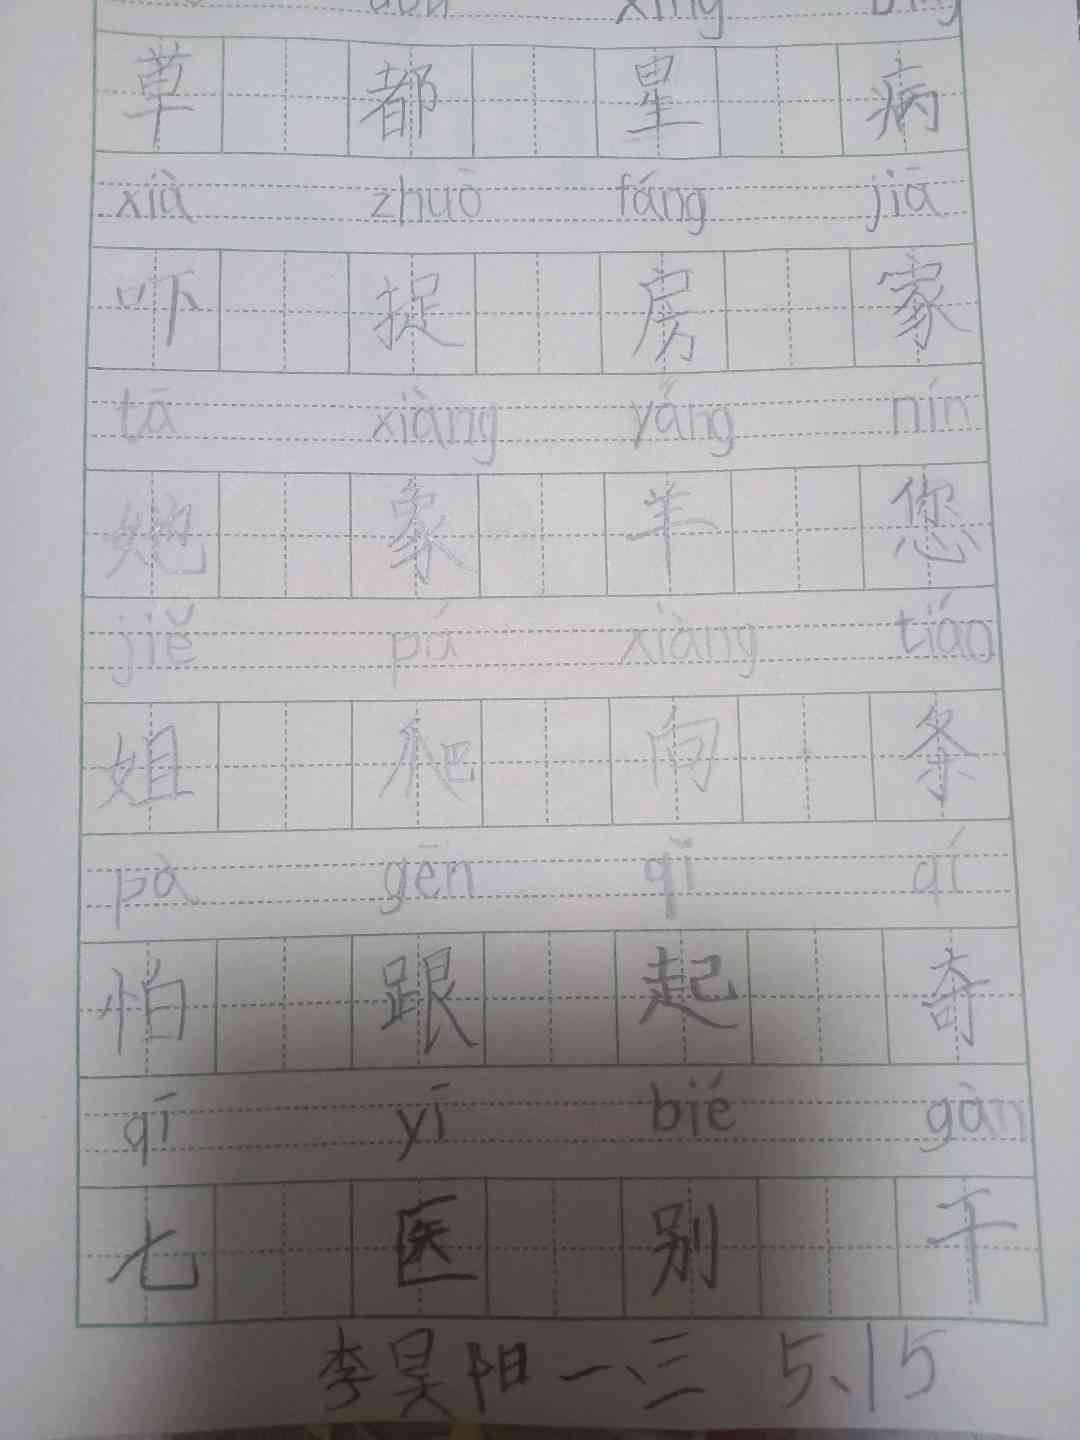 dōu xīng bìng
草 都 星 病
xià zhuō fáng jiā
吓 捉 房 家
tā xiàng yáng nín
她 象 羊 您
jiě pá xiàng tiáo
姐 爬 向 条
pà gēn qǐ qí
怕 跟 起 奇
qī yī bié gàn
七 医 别 干
李昊阳 一、三 5、15